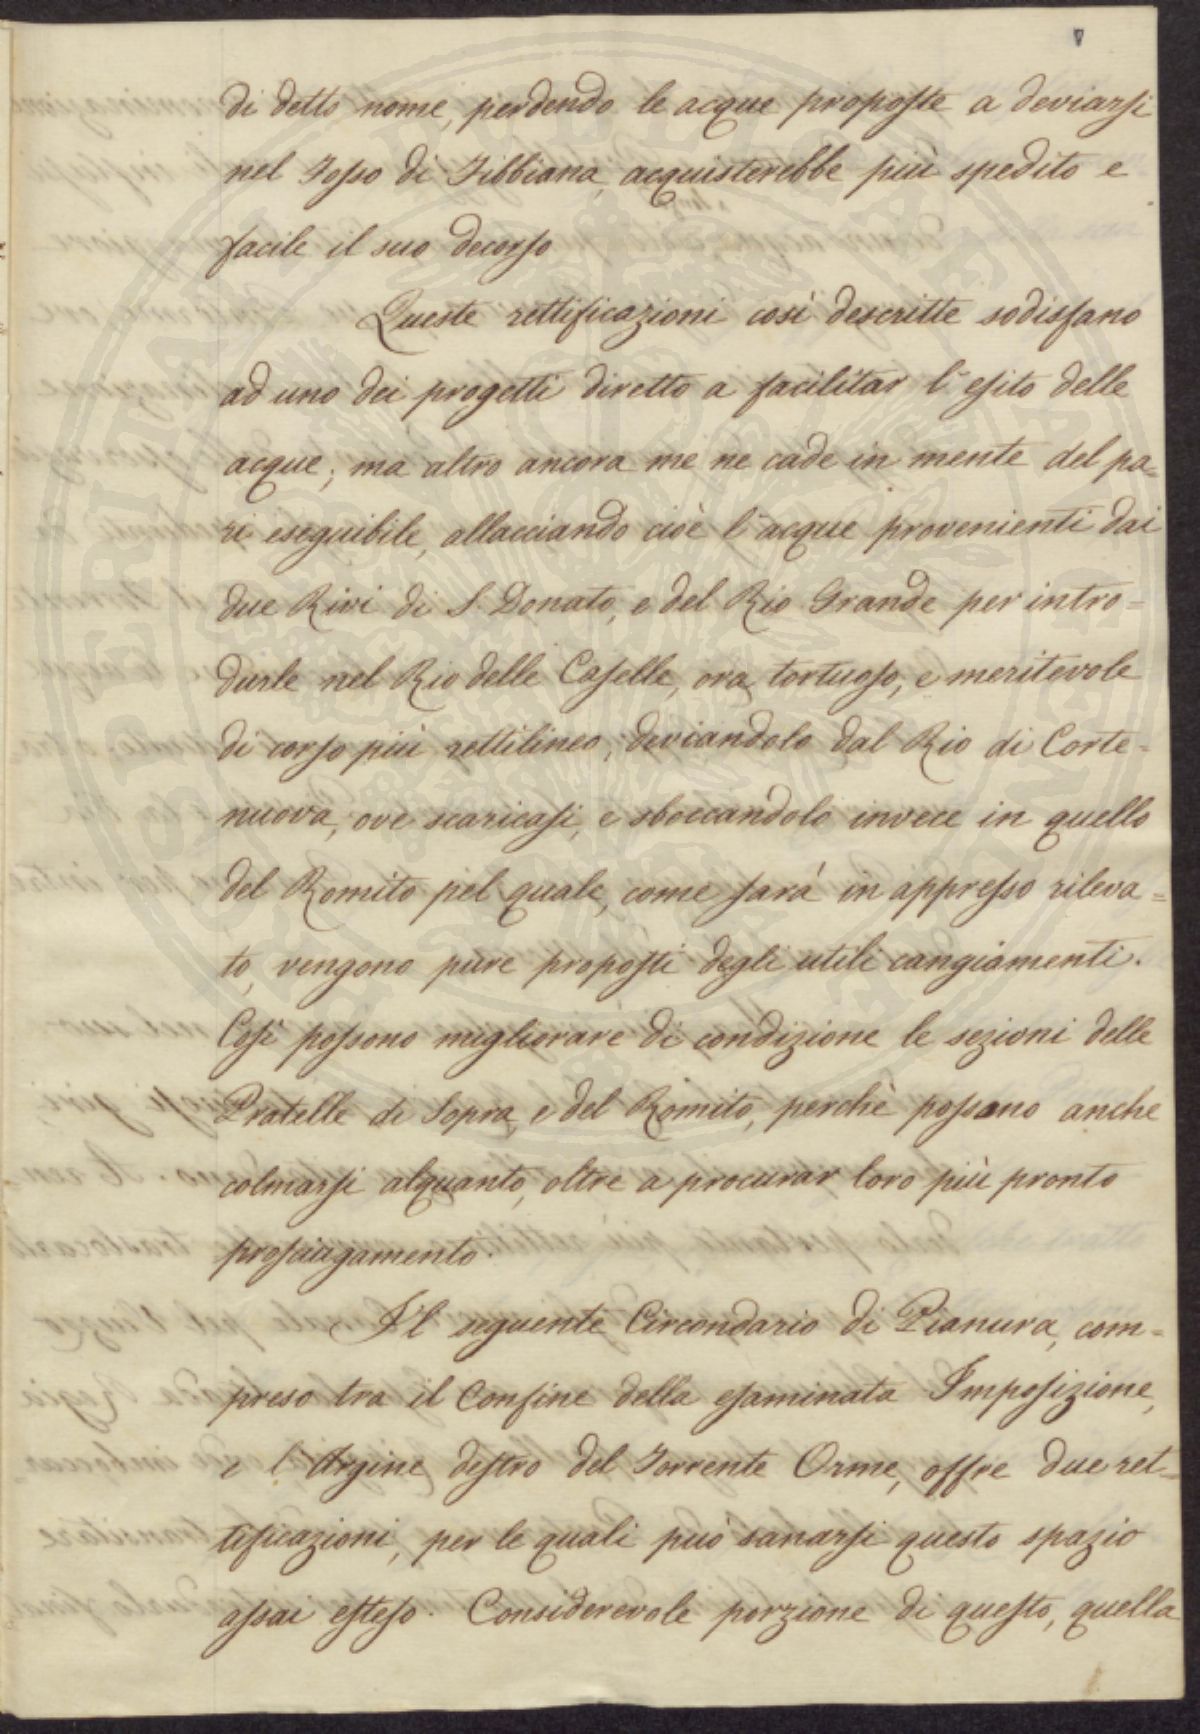 di detto nome, perdendo le acque proposte a deviarsi
nel Fosso di Fibbiana, acquisterebbe più spedito e
facile il suo decorso
Queste rettificazioni così descritte sodisfano
ad uno dei progetti diretto a facilitar l'esito delle
acque; ma altro ancora me ne cade in mente del pa=
ri eseguibile, allacciando cioè l'acque provenienti dai
due Rivi di S. Donato, e del Rio Grande per intro=
durle nel Rio delle Caselle, ora tortuoso, e meritevole
di corso più rettilineo, deviandolo dal Rio di Corte=
nuova, ove scaricasi, e sboccandolo invece in quello
del Romito pel quale, come sarà in appresso rileva=
to, vengono pure proposti degli utili cangiamenti.
Così possono migliorare di condizione le sezioni delle
Pratelle di Sopra, e del Romito, perchè possano anche
colmarsi alquanto, oltre a procurar loro più pronto
prosciugamento.
Il seguente Circondario di Pianura, com=
preso tra il Confine della esaminata Imposizione,
e l'Argine destro del Torrente Orme, offre due ret=
tificazioni, per le quali può sanarsi questo spazio
assai esteso. Considerevole porzione di questo, quella